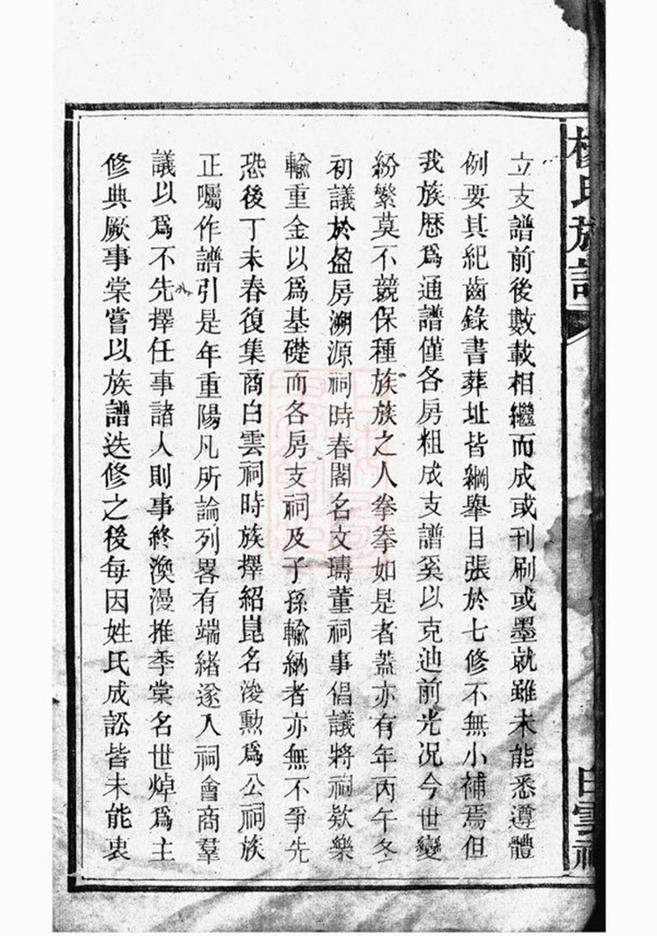 楊氏族譜
白雲祠
立支譜前後數載相繼而成或刊刷或墨就雖未能悉遵體
例要其紀齒錄書葬址皆綱舉目張於七修不無小補焉但
我族歷爲通譜僅各房粗成支譜奚以克迪前光况今世變
紛繁莫不競保種族族之人拳拳如是者蓋亦有年丙午冬
初議於盈房溯源祠時春閣名文璹董祠事倡議將祠欵樂
輸重金以爲基礎而各房支祠及子孫輸納者亦無不爭先
恐後丁未春復集商白雲祠時族擇紹崑名浚勲爲公祠族
正囑作譜引是年重陽凡所論列畧有端緒遂入祠會商羣
議以爲不先擇任事諸人則事終渙漫推季棠名世焯爲主
修典厥事棠嘗以族譜迭修之後每因姓氏成訟皆未能衷